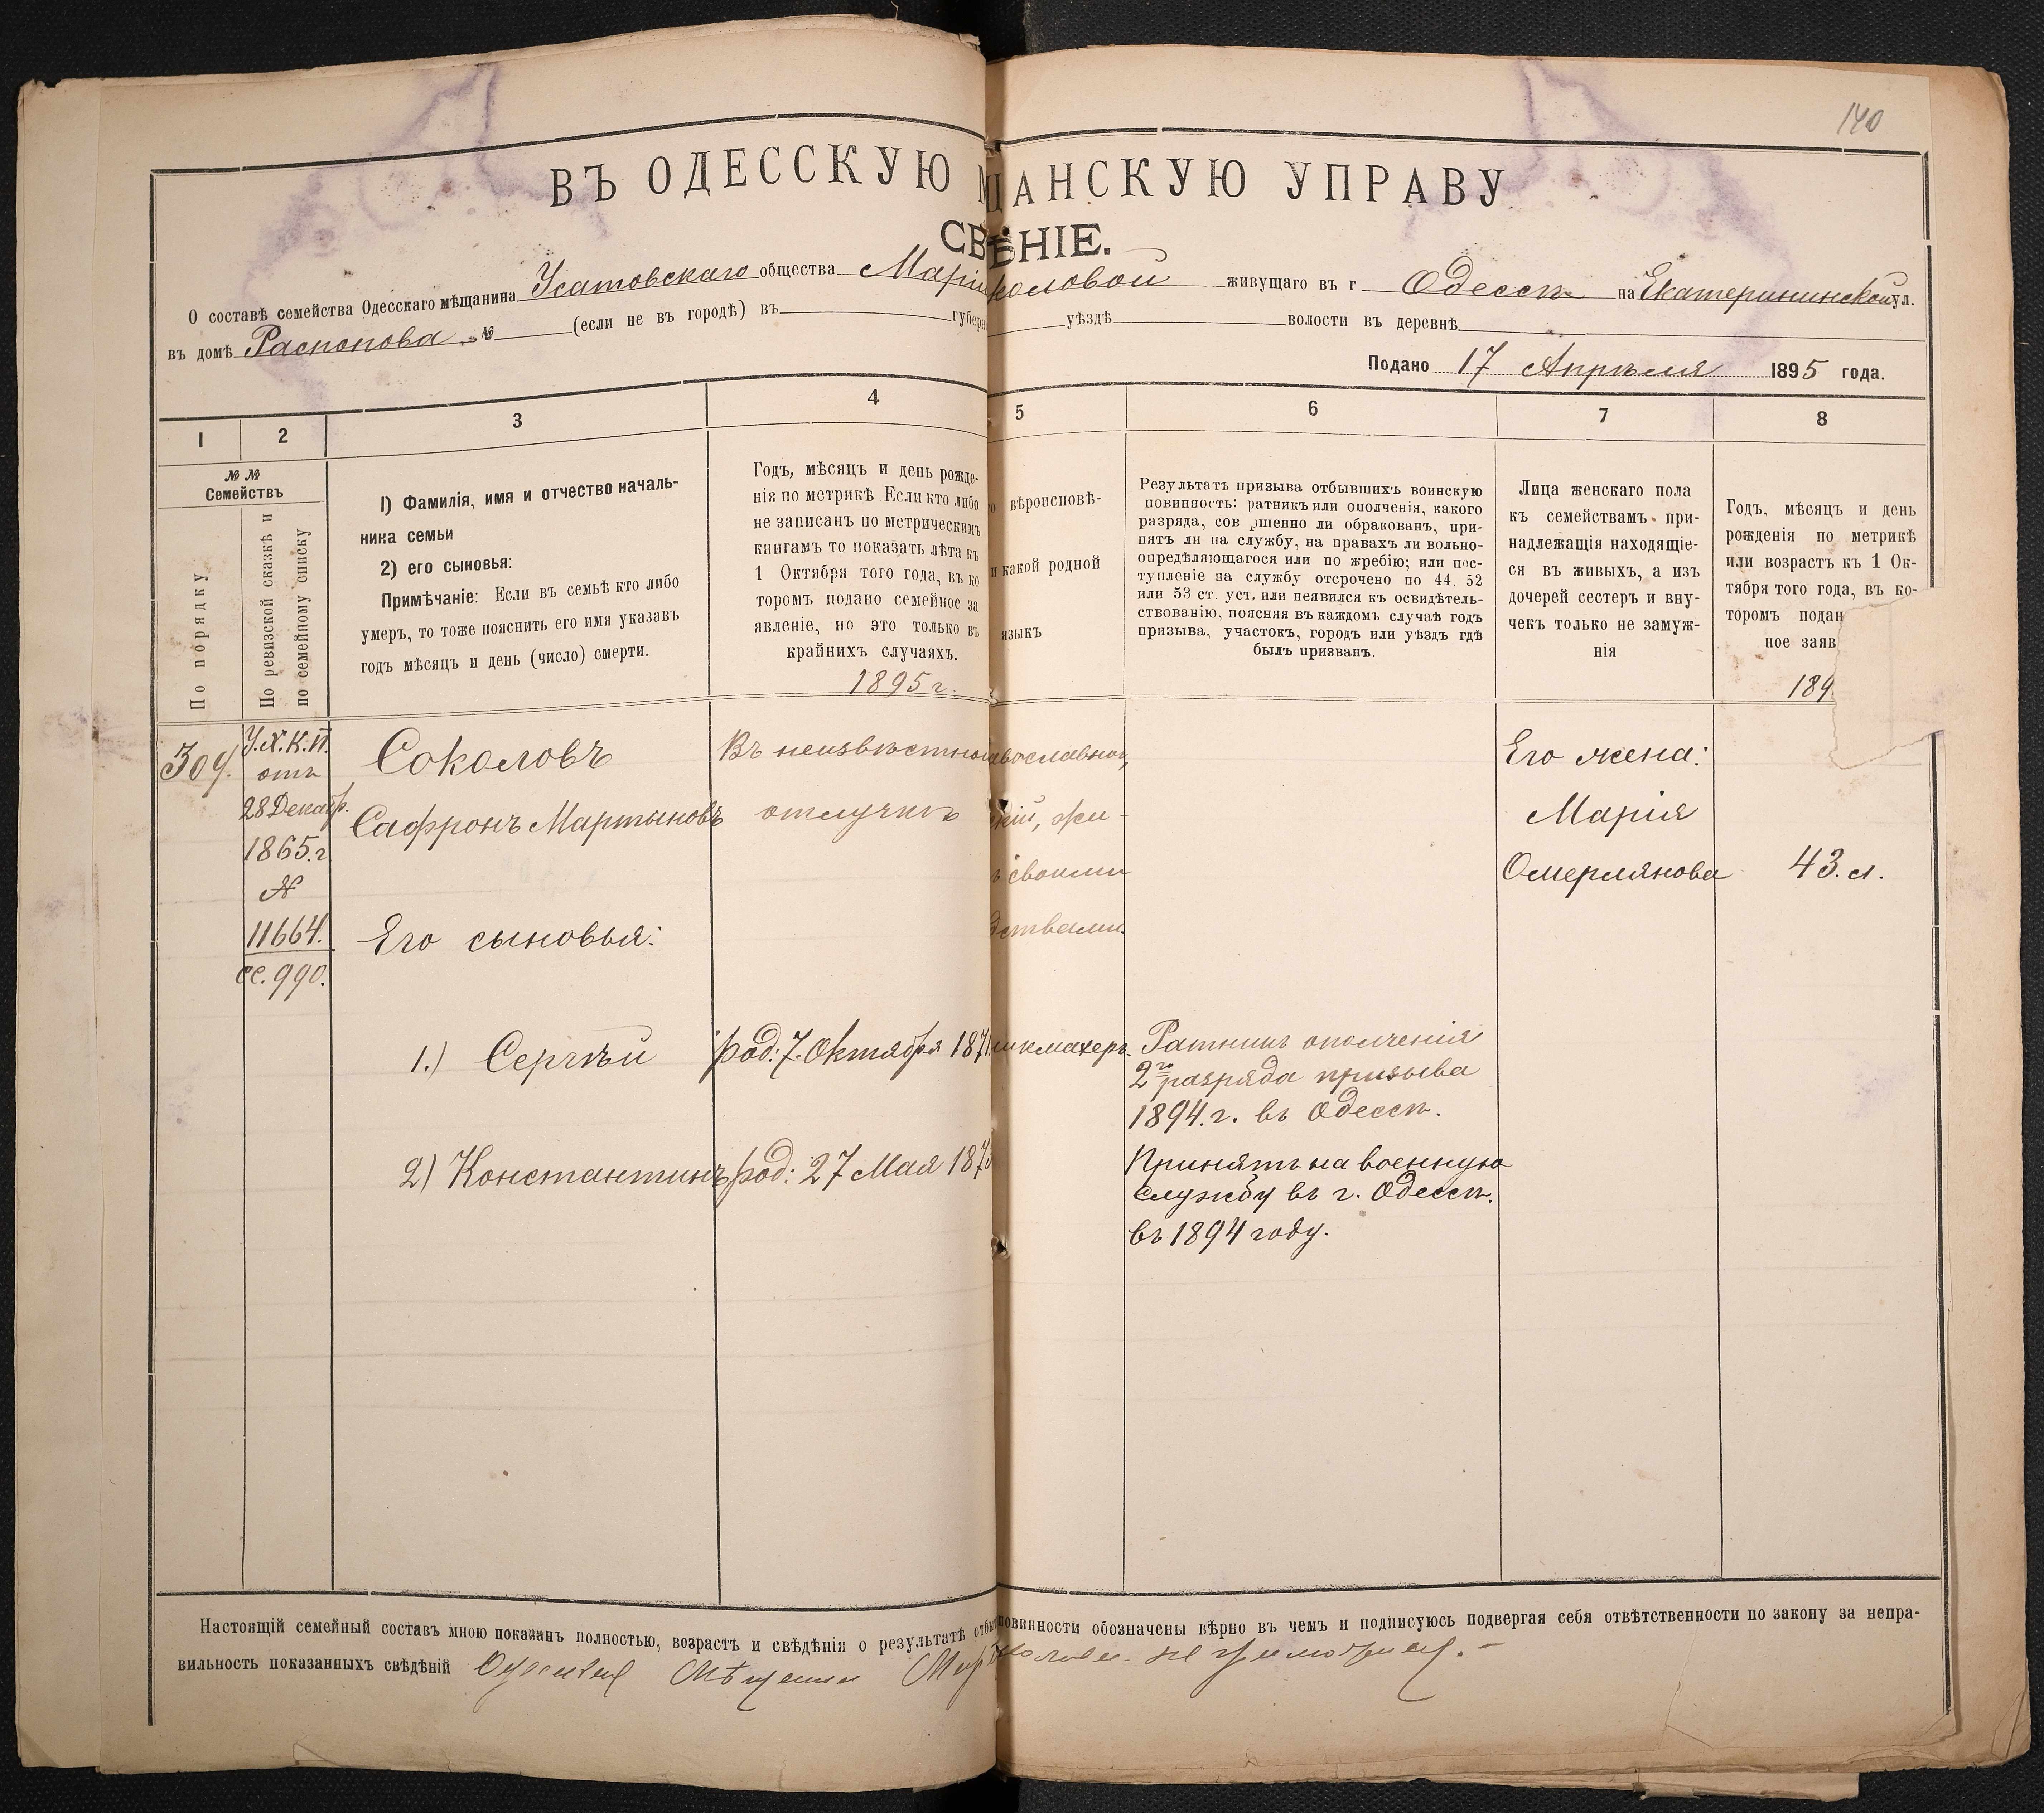 140
ВЪ ОДЕССКУЮ МЩАНСКУЮ УПРАВУ
СВѢНІЕ.
О составѣ семейства Одесскаго мѣщанина Усатовскаго общества Маріи коловой живущаго въ г Одессѣ на Екатерининской ул.
въ домѣ Распопова № (если не въ городѣ) въ губерн уѣздѣ волости въ деревнѣ
Подано 17 Апрѣля 1895 года.
1 2 3 4 5 6 7 8
№ №
Семействъ
По порядку
По ревизской сказкѣ и
по семейному списку
1) Фамилія, имя и отчество началь-
ника семьи
2) его сыновья:
Примѣчаніе: Если въ семьѣ кто либо
умеръ, то тоже пояснить его имя указавъ
годъ мѣсяцъ и день (число) смерти.
Годъ, мѣсяцъ и день рожде-
нія по метрикѣ Если кто либо
не записанъ по метрическимъ
книгамъ то показать лѣта къ
1 Октября того года, въ ко
торомъ подано семейное за
явленіе, но это только въ
крайнихъ случаяхъ.
1895 г.
о вѣроисповѣ-
и какой родной
языкъ
Результатъ призыва отбывшихъ воинскую
повинность: ратникъ или ополченія, какого
разряда, сов ршенно ли обракованъ, при-
нятъ ли на службу, на правахъ ли вольно-
опредѣляющагося или по жребію; или пос-
тупленіе на службу отсрочено по 44, 52
или 53 ст. уст. или неявился къ освидѣтель-
ствованію, поясняя въ каждомъ случаѣ годъ
призыва, участокъ, городъ или уѣздъ гдѣ
былъ призванъ.
Лица женскаго пола
къ семействамъ при-
надлежащія находящіе-
ся въ живыхъ, а изъ
дочерей сестеръ и вну-
чекъ только не замуж-
нія
Годъ, мѣсяцъ и день
рожденія по метрикѣ
или возрастъ къ 1 Ок-
тября того года, въ ко-
торомъ подан
ное заяв
189
309.
У.Х.К.П.
отъ
28 Декабр.
1865.г
№
11664.
сс. 990.
Соколовъ
Сафронъ Мартыновъ
Въ неизвѣстной
отлучкѣ
авославног,
скій, жи-
ъ своими
дствами.
Его жена:
Марія
Омерлянова
43. л.
Его сыновья:
1.) Сергѣй
род: 7 Октября 1871
икмахеръ.
Ратникъ ополченія
2го разряда призыва
1894. г. въ Одессѣ.
2) Константинъ
род: 27 Мая 187
Принятъ на военную
службу въ г. Одессѣ.
въ 1894 году.
Настоящій семейный составъ мною показанъ полностью, возрастъ и свѣдѣнія о результатѣ отбы повинности обозначены вѣрно въ чемъ и подписуюсь подвергая себя отвѣтственности по закону за непра-
вильность показанныхъ свѣдѣній Одесская Мѣщанка Мар колова неграмотная. -